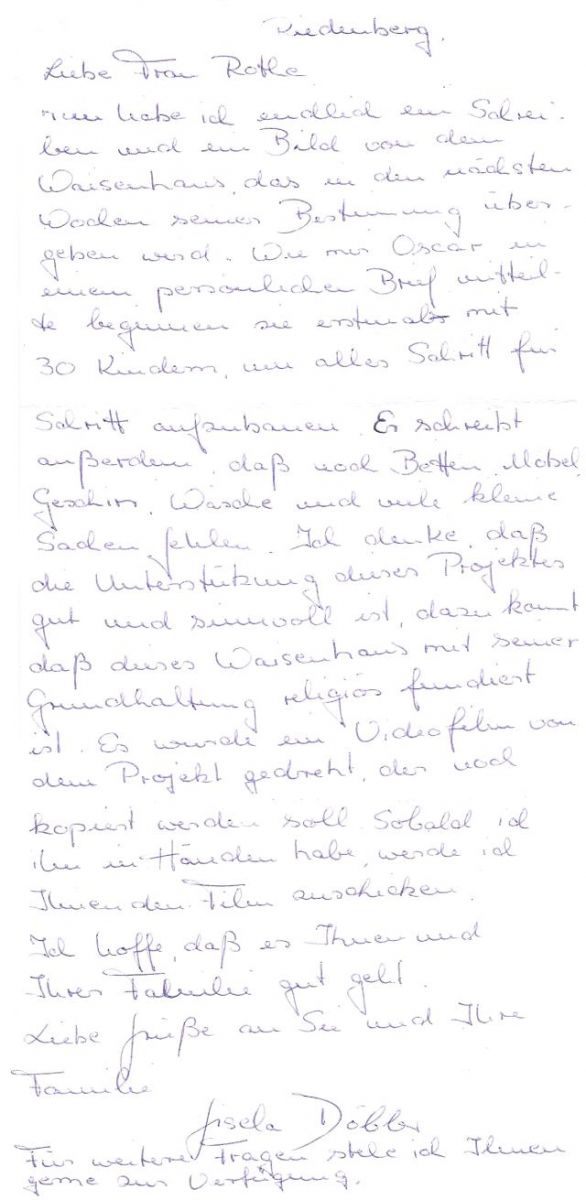 Riedenberg,
Liebe Frau Rothe
nun habe ich endlich ein Schrei-
ben und ein Bild von dem
Waisenhaus, das in den nächsten
Wochen seiner Bestimmung über-
geben wird. Wie mir Oscar in
einem persönlichen Brief mitteil-
te beginnen sie erstmals mit
30 Kindern, um alles Schritt für
Schritt aufzubauen. Er schreibt
außerdem, daß noch Betten, Möbel,
Geschirr, Wäsche und viele kleine
Sachen fehlen. Ich denke, daß
die Unterstützung dieses Projektes
gut und sinnvoll ist, dazu kommt
daß dieses Waisenhaus mit seiner
Grundhaltung religiös fundiert
ist. Es wurde ein Videofilm von
dem Projekt gedreht, der noch
kopiert werden soll. Sobald ich
ihn in Händen habe, werde ich
Ihnen den Film zuschicken.
Ich hoffe, daß es Ihnen und
Ihrer Familie gut geht.
Liebe Grüße an Sie und Ihre
Familie
Gisela
Für weitere Fragen stehe ich Ihnen
gerne zur Verfügung.